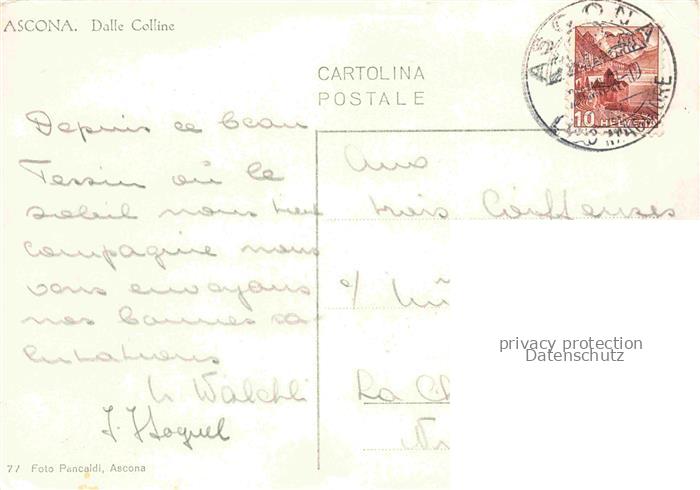 ASCONA. Dalle Colline
CARTOLINA
POSTALE
ASCONA
LAGO MAGGIORE
10 HELVETIA
Depuis ce beau
Tessin où le
soleil nous tient
compagnie nous
vous envoyons
nos bonnes sa-
lutations
Wälchli
Aux
trois Coiffeuses
c/
La Ch
privacy protection
Datenschutz
77 Foto Pancaldi, Ascona